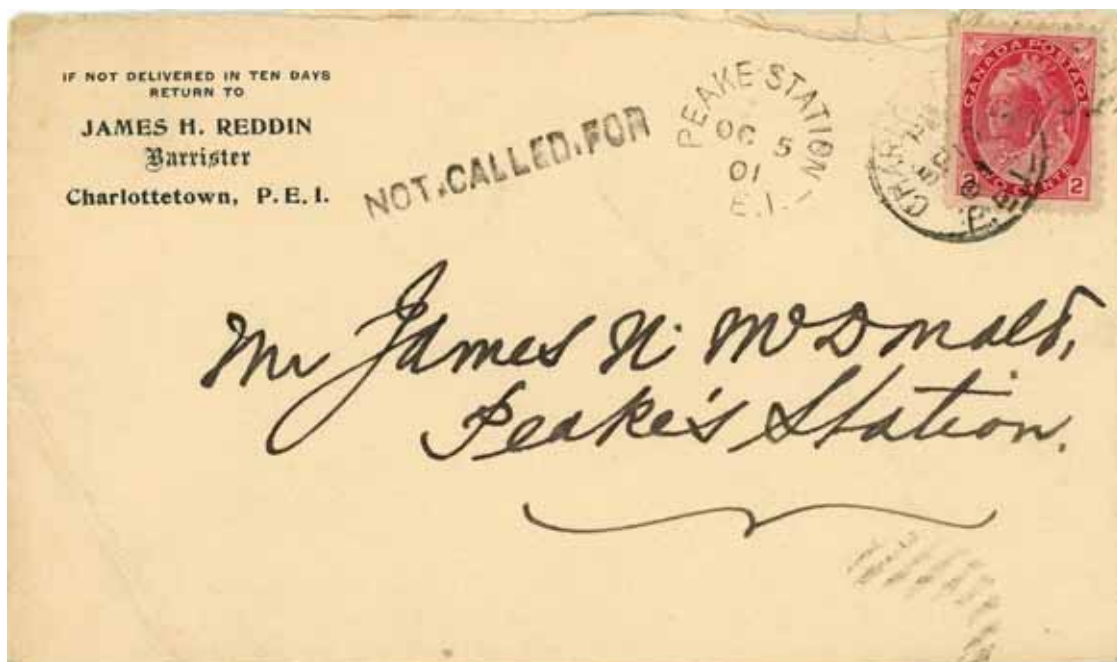 IF NOT DELIVERED IN TEN DAYS
RETURN TO
JAMES H. REDDIN
Barrister
Charlottetown, P.E.I.
NOT.CALLED.FOR
PEAKE STATION
OC 5
01
E.I.
CANADA POSTAGE
2 TWO CENTS 2
Mr James N. McDonald,
Peake's Station.